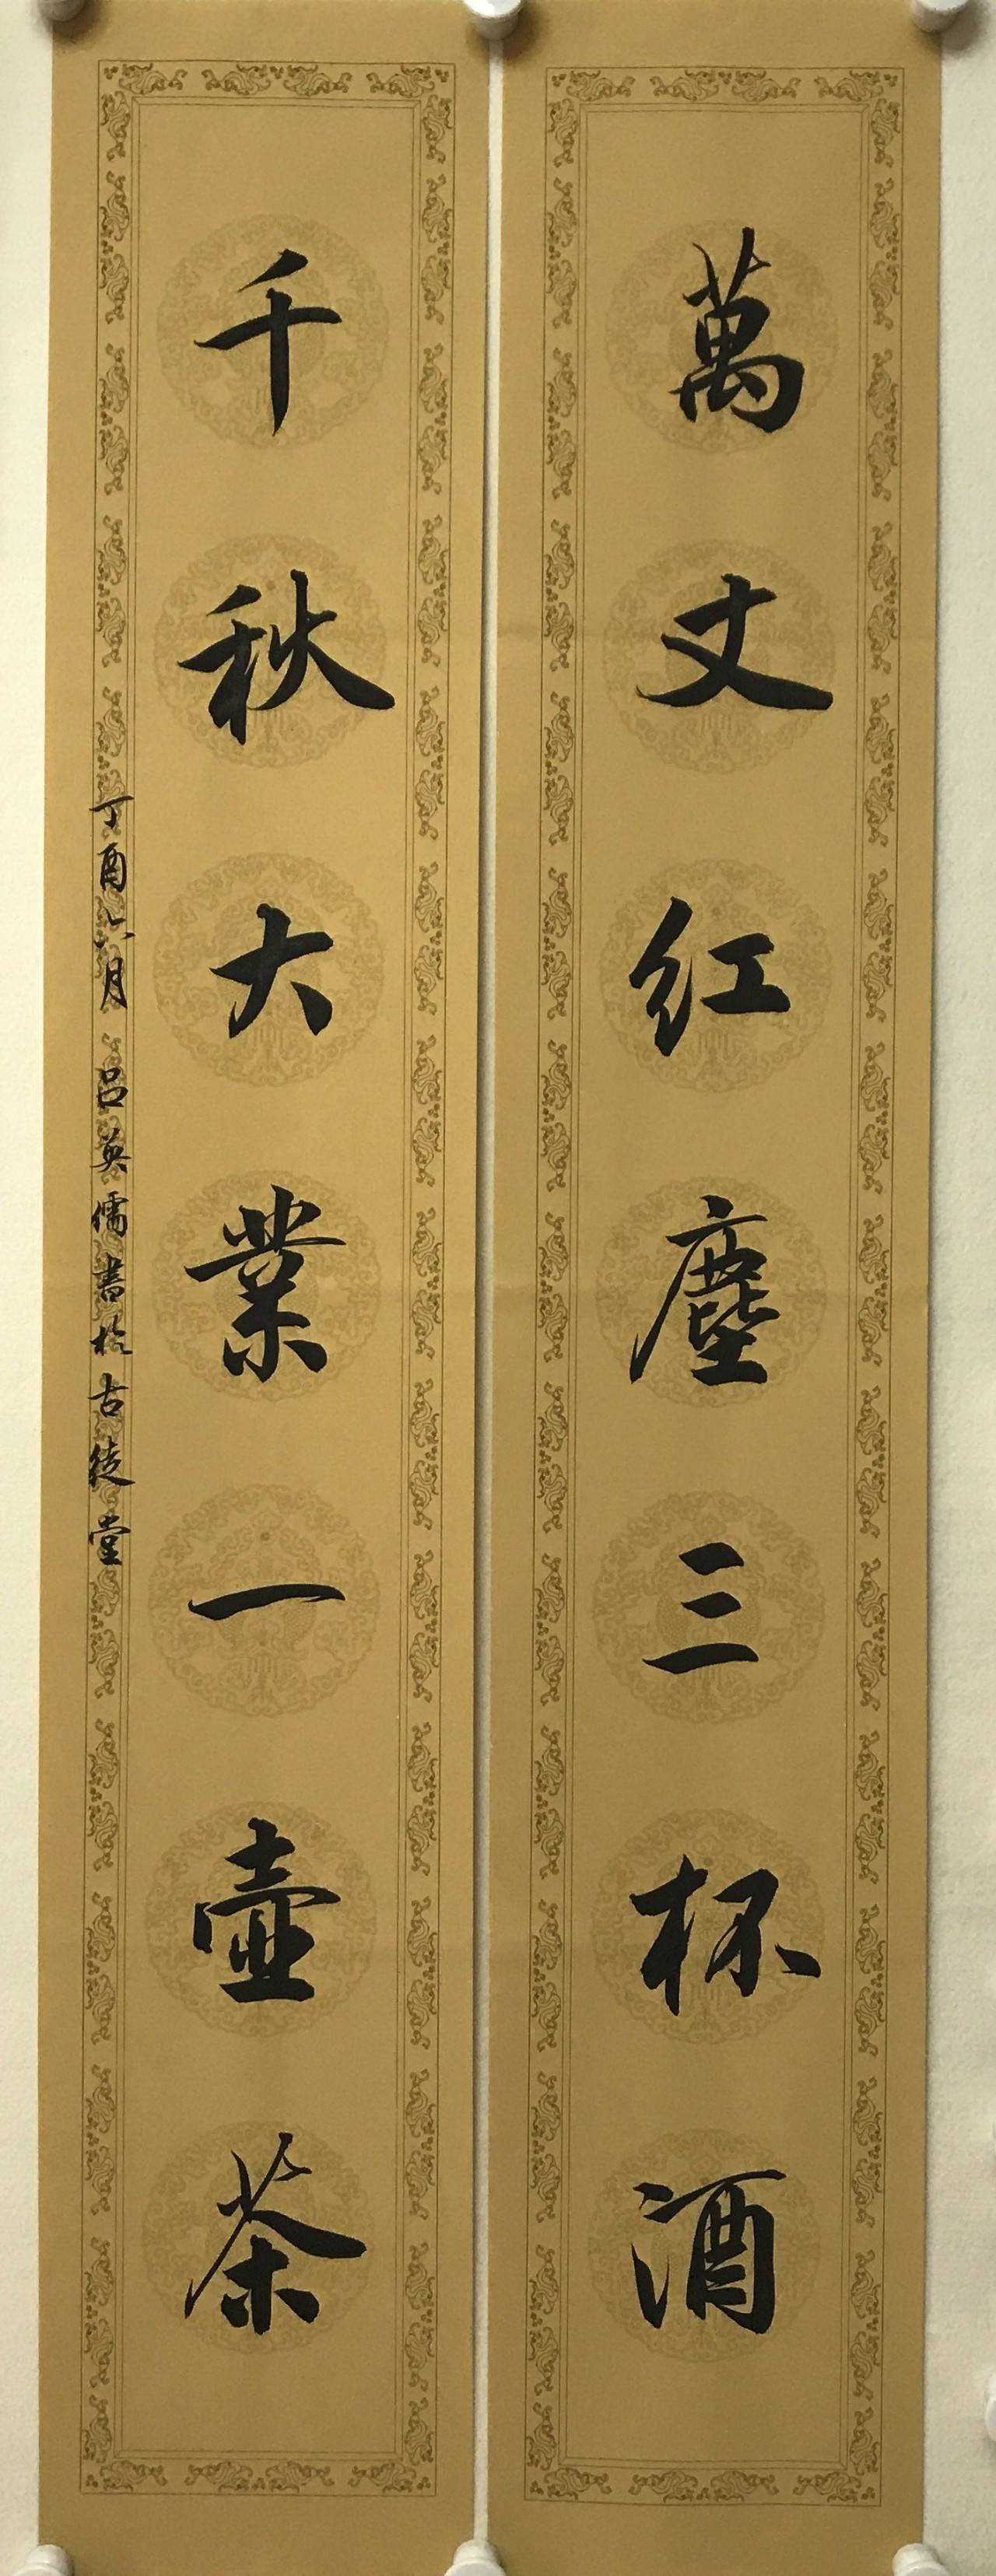 萬丈红塵三杯酒
千秋大業一壺茶
丁酉六月 吕英儒書於古徒堂